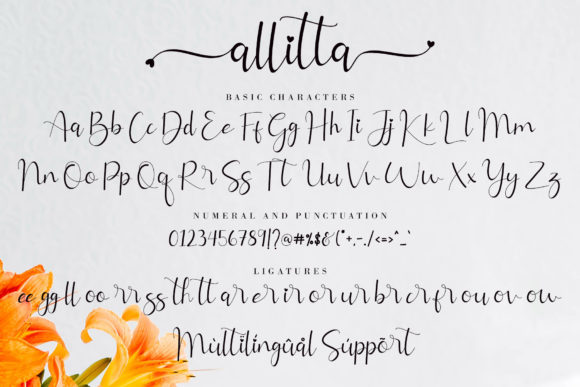 allitta
BASIC CHARACTERS
Aa Bb Cc Dd Ee Ff Gg Hh Ii Jj Kk Ll Mm
Nn Oo Pp Qq Rr Ss Tt Uu Vv Ww Xx Yy Zz
NUMERAL AND PUNCTUATION
0123456789!?@#%$&("+,-./<=>^_`
LIGATURES
ee gg ll oo rr ss th tt ar er ir or ur br cr fr ou ov ow
Mùltïlíngûâl Súppõrt